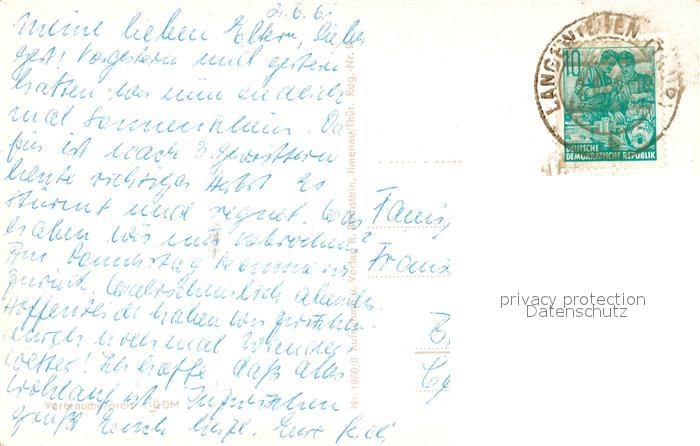 21.6.61
Meine lieben Eltern, lieber
Vorgestern und gestern
hatten wir nun endlich
mal Sonnenschein. Da
für ist nach 3 Gewittern
heute richtiger Herbst. Es
stürmt und regnet. Was
haben wir nur verbrochen?
Am Donnerstag kommen wir
zurück. Wahrscheinlich abends.
Hoffentlich haben wir zwischen
durch noch mal Wander-
wetter! Ich hoffe, daß alles
wohlauf ist. Inzwischen
grüßt Euch herzl. Eure
Verbraucherpreis 10 DM
Nr. 1960/II Verlag R. Ilmenau/Thür. Reg.-Nr.
10
DEUTSCHE
DEMOKRATISCHE REPUBLIK
Franz
privacy protection
Datenschutz